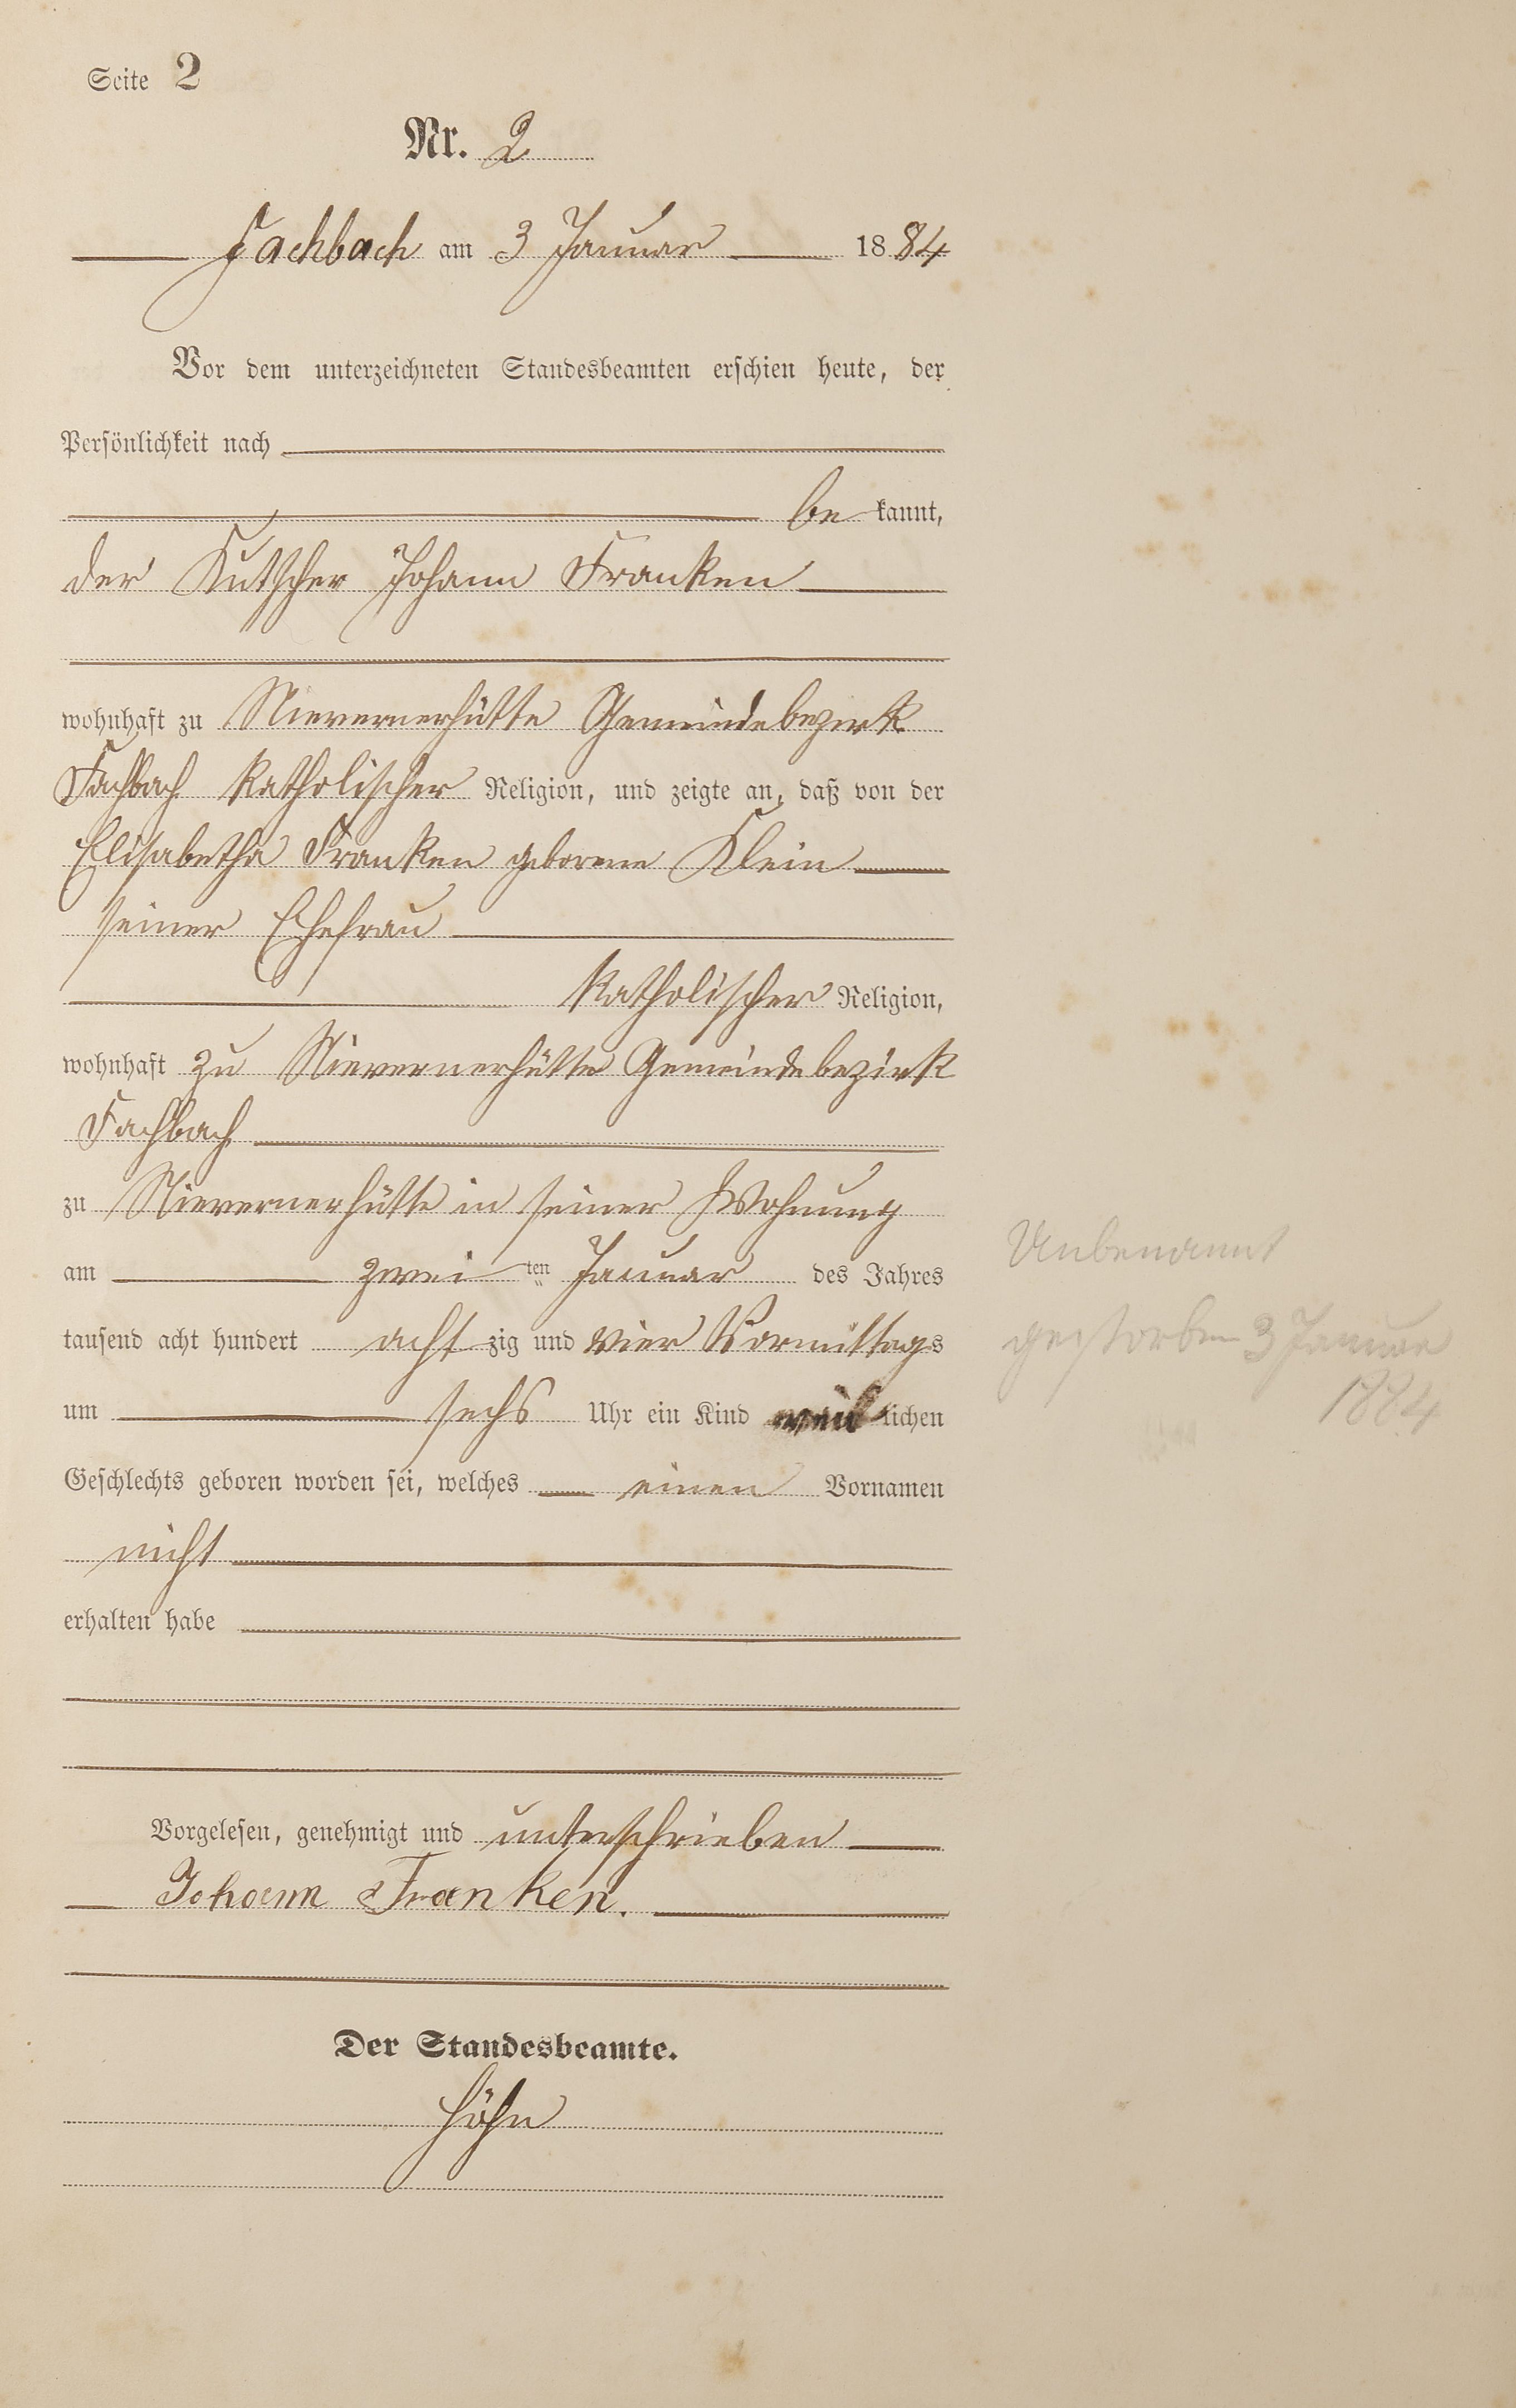 Seite 2
Nr. 2
Fachbach am 3 Januar 1884
Vor dem unterzeichneten Standesbeamten erschien heute, der
Persönlichkeit nach
be kannt,
der Kutscher Johann Franken
wohnhaft zu Nievernerhütte Gemeindebezirk
Fachbach katholischer Religion, und zeigte an, daß von der
Elisabetha Franken geborene Klein
seiner Ehefrau
katholischer Religion,
wohnhaft zu Nievernerhütte Gemeindebezirk
Fachbach
zu Nievernerhütte in seiner Wohnung
am zwei ten Januar des Jahres
tausend acht hundert acht zig und vier Vormittags
um sechs Uhr ein Kind weib lichen
Geschlechts geboren worden sei, welches einen Vornamen
nicht
erhalten habe
Vorgelesen, genehmigt und unterschrieben
Johann Franken.
Der Standesbeamte.
Höhn
Unbenannt
gestorben 3 Januar
1884